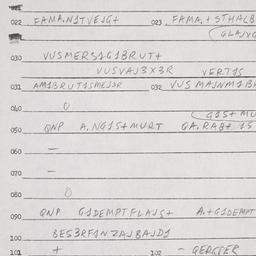 022 FAMA.N1TVEJG+ 023 FAMA.+STHALB
(GLAJVG
030 VUSMERS1G1BRUT+
VUSVAJ3X3R VERT1S
031 AM1BRUT1SMEJ3R 032 VUS MAJNM1B
040 0
(G1S+MU
050 QNP A.NG1S+MURT GA.RAB+ 15
060 —
070 —
080 0
090 QNP G1DEMPTFLAJS+ A.+G1DEMPT
100 BES3RF1NZAJBAJD1
101 + 102 - GERGPER